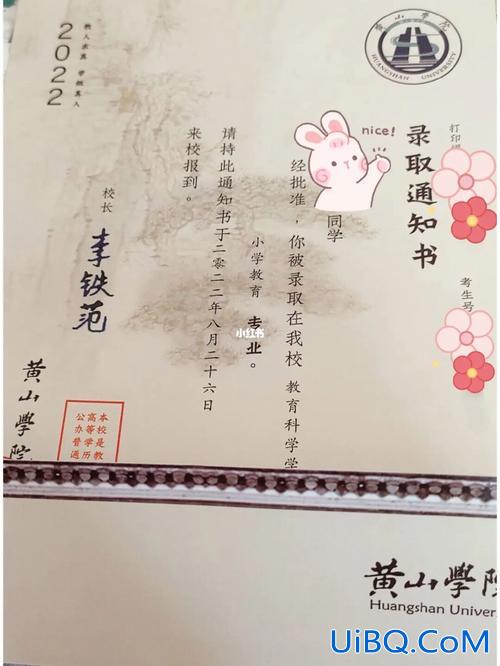 黄山学院
HUANGSHAN UNIVERSITY
录取通知书
考生号
nice!
同学
经批准，你被录取在我校 教育科学学
小学教育 专业。
请持此通知书于二〇二二年八月二十六日
来校报到。
校长
李铁范
2022
教人求真 学做真人
黄山學院
本校是教
高等学历
公办普通
小红书
黄山學院
Huangshan Univer
UiBQ.CoM